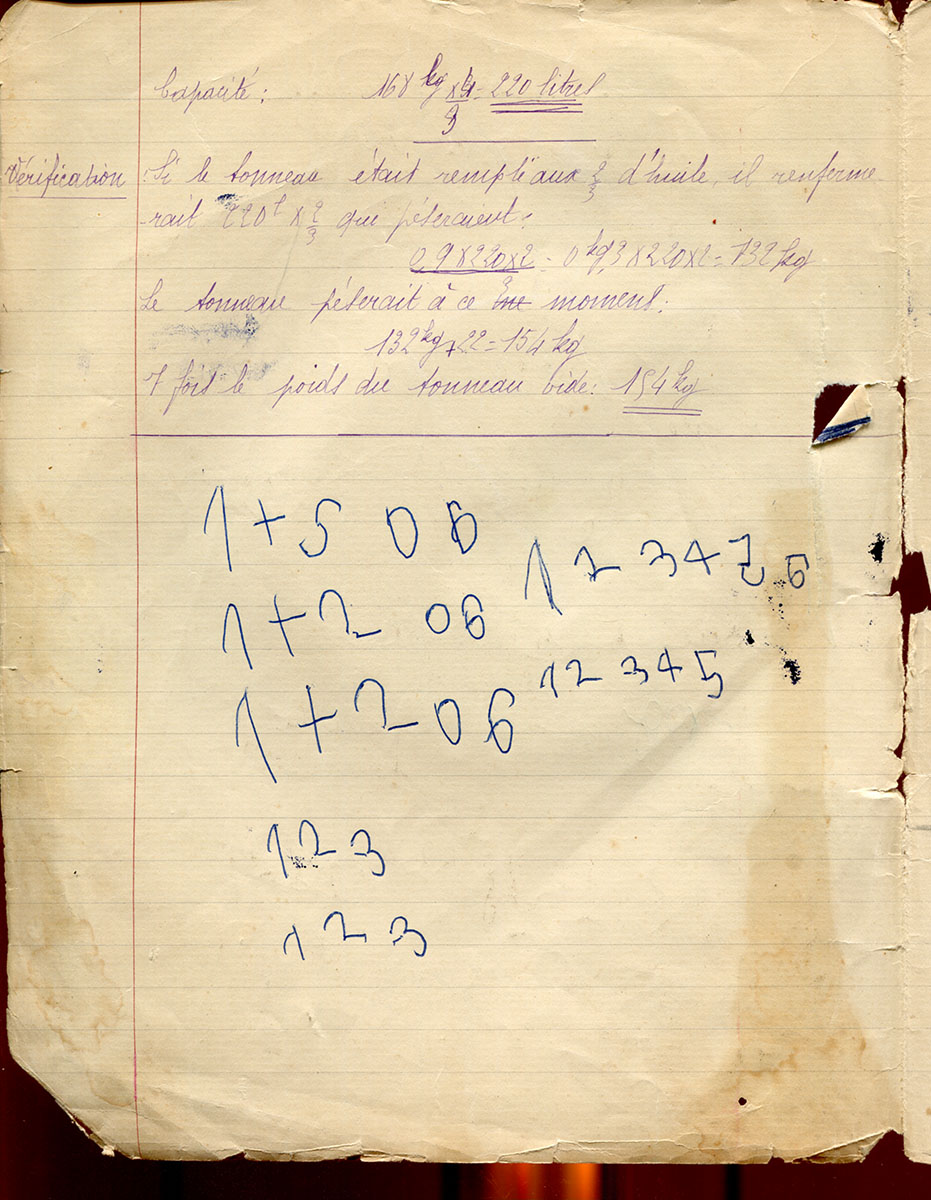 Capacité : 220 litres
Vérification Si le tonneau était rempli aux 2/3 d'huile, il renferme
rait 220ˡ × 2/3 qui pèseraient :
0,9×220×2 = 0 kg ×220×2 = 132 kg
3
Le tonneau pèserait à ce moment :
132 kg + 22 = 154 kg
7 fois le poids du tonneau vide : 154 kg
1 + 5 0 6
1 2 3 4 5 6
1 + 2 0 6
1 2 3 4 5
1 + 2 0 6
1 2 3
1 2 3